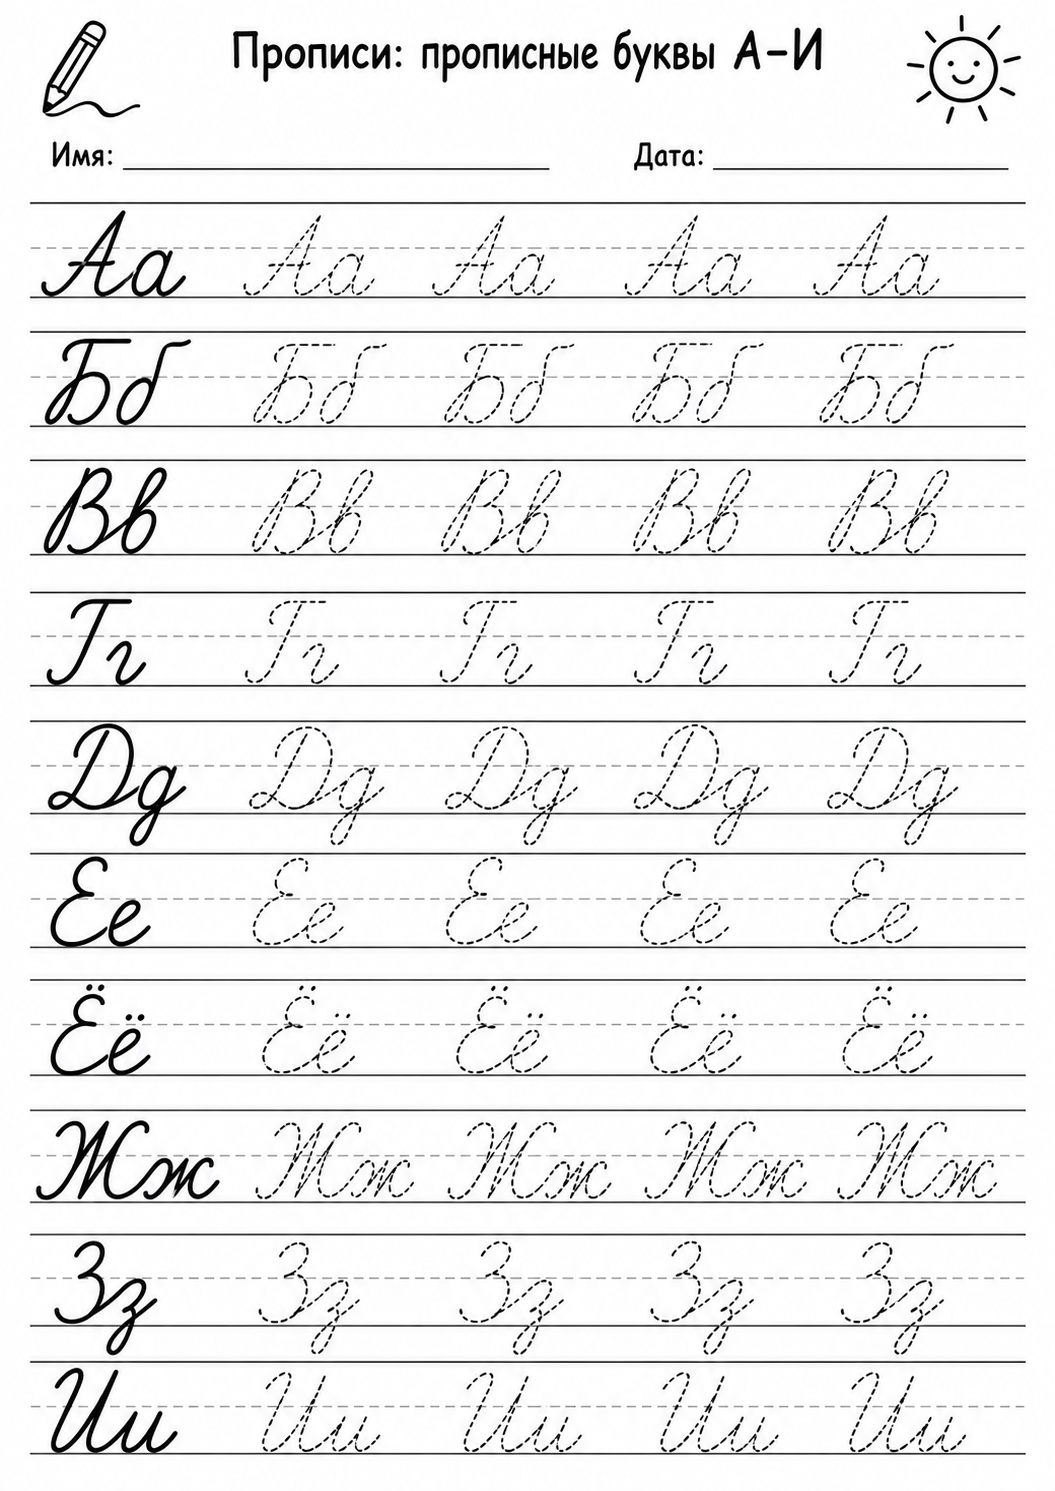 Прописи: прописные буквы А–И
Имя: Дата:
Аа Аа Аа Аа Аа
Бб Бб Бб Бб Бб
Вв Вв Вв Вв Вв
Гг Гг Гг Гг Гг
Дд Дд Дд Дд Дд
Ее Ее Ее Ее Ее
Ёё Ёё Ёё Ёё Ёё
Жж Жж Жж Жж Жж
Зз Зз Зз Зз Зз
Ии Ии Ии Ии Ии